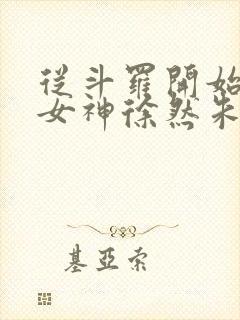 從斗羅開始
女神徐然朱
基亞索